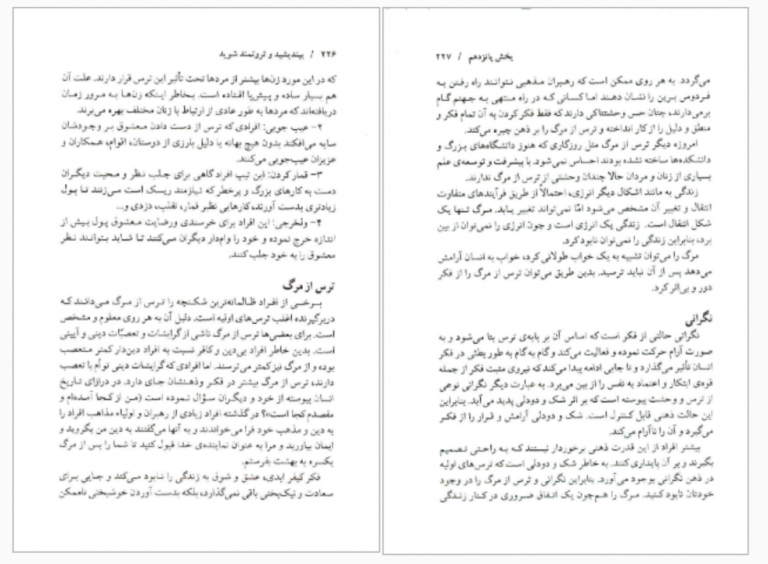 ۲۲۶ / بیندیشید و ثروتمند شوید
که در این مورد زن‌ها بیشتر از مردها تحت تأثیر این ترس قرار دارند. علت آن
هم بسیار ساده و پیش‌پا افتاده است. بخاطر اینکه زن‌ها به مرور زمان
دریافته‌اند که مردها به طور عادی از ارتباط با زنان مختلف بهره می‌برند.
۲- عیب جویی: افرادی که ترس از دست دادن معشوق بر وجودشان
سایه می‌افکند بدون هیچ بهانه یا دلیل بارزی از دوستان، اقوام، همکاران و
عزیزان عیب‌جویی می‌کنند.
۳- قمار کردن: این تیپ افراد گاهی برای جلب نظر و محبت دیگران
دست به کارهای بزرگ و پرخطر که نیازمند ریسک است می‌زنند تا پول
زیادتری بدست آورند، کارهایی نظیر قمار، تقلب، دزدی و...
۴- ولخرجی: این افراد برای خرسندی و رضایت معشوق پول بیش از
اندازه خرج نموده و خود را وام‌دار دیگران می‌کنند تا شاید بتوانند نظر
معشوق را به خود جلب کنند.
ترس از مرگ
برخی از افراد ظالمانه‌ترین شکنجه را ترس از مرگ می‌دانند که
دربرگیرنده اغلب ترس‌های اولیه است. دلیل آن به هر روی معلوم و مشخص
است. برای بعضی‌ها ترس از مرگ ناشی از گرایشات و تعصبّات دینی و آیینی
است. بدین خاطر افراد بی‌دین و کافر نسبت به افراد دین‌دار کمتر متعصب
بوده و از مرگ نیز کمتر می‌ترسند. اما افرادی که گرایشات دینی توأم با تعصب
دارند، ترس از مرگ بیشتر در فکر و ذهنشان جای دارد. در درازای تاریخ
انسان پیوسته از خود و دیگران سؤال نموده است (من از کجا آمده‌ام و
مقصدم کجا است؟) در گذشته افراد زیادی از رهبران و اولیاء مذاهب افراد را
به دین و مذهب خود فرا می‌خواندند و به آنها می‌گفتند به دین من بگروید و
ایمان بیاورید و مرا به عنوان نماینده‌ی خدا قبول کنید تا شما را پس از مرگ
یکسره به بهشت بفرستم.
فکر کیفر ابدی، عشق و شوق به زندگی را نابود می‌کند و جایی برای
سعادت و نیک‌بختی باقی نمی‌گذارد، بلکه بدست آوردن خوشبختی ناممکن
بخش پانزدهم / ۲۲۷
می‌گردد. به هر روی ممکن است که رهبران مذهبی نتوانند راه رفتن به
فردوس برین را نشان دهند اما کسانی که در راه منتهی به جهنم گام
برمی‌دارند، چنان حس وحشتناکی دارند که فقط فکر کردن به آن تمام فکر و
منطق و دلیل را از کار انداخته و ترس از مرگ را بر ذهن چیره می‌کند.
امروزه دیگر ترس از مرگ مثل روزگاری که هنوز دانشگاه‌های بزرگ و
دانشکده‌ها ساخته نشده بودند احساس نمی‌شود. با پیشرفت و توسعه‌ی علم
بسیاری از زنان و مردان حالا چندان وحشتی از ترس از مرگ ندارند.
زندگی به مانند اشکال دیگر انرژی، احتمالاً از طریق فرآیندهای متفاوت
انتقال و تغییر آن مشخص می‌شود امّا نمی‌تواند تغییر یابد. مرگ تنها یک
شکل انتقال است. زندگی یک انرژی است و چون انرژی را نمی‌توان از بین
برد، بنابراین زندگی را نمی‌توان نابود کرد.
مرگ را می‌توان تشبیه به یک خواب طولانی کرد، خواب به انسان آرامش
می‌دهد پس از آن نباید ترسید. بدین طریق می‌توان ترس از مرگ را از فکر
دور و بی‌اثر کرد.
نگرانی
نگرانی حالتی از فکر است که اساس آن بر پایه‌ی ترس بنا می‌شود و به
صورت آرام حرکت نموده و فعالیت می‌کند و گام به گام به طور بطئی در فکر
انسان تأثیر می‌گذارد و تا جایی ادامه پیدا می‌کند که نیروی مثبت فکر از جمله
قوه‌ی ابتکار و اعتماد به نفس را از بین می‌برد. به عبارت دیگر نگرانی نوعی
از ترس و وحشت پیوسته است که بر اثر شک و دودلی پدید می‌آید. بنابراین
این حالت ذهنی قابل کنترل است. شک و دودلی آرامش و قرار را از فکر
می‌گیرد و آن را ناآرام می‌کند.
بیشتر افراد از این قدرت ذهنی برخوردار نیستند که به راحتی تصمیم
بگیرند و بر آن پایداری کنند. به خاطر شک و دودلی است که ترس‌های اولیه
در ذهن نگرانی بوجود می‌آورد. بنابراین نگرانی و ترس از مرگ را در وجود
خودتان نابود کنید. مرگ را هم‌چون یک اتفاق ضروری در کنار زندگی